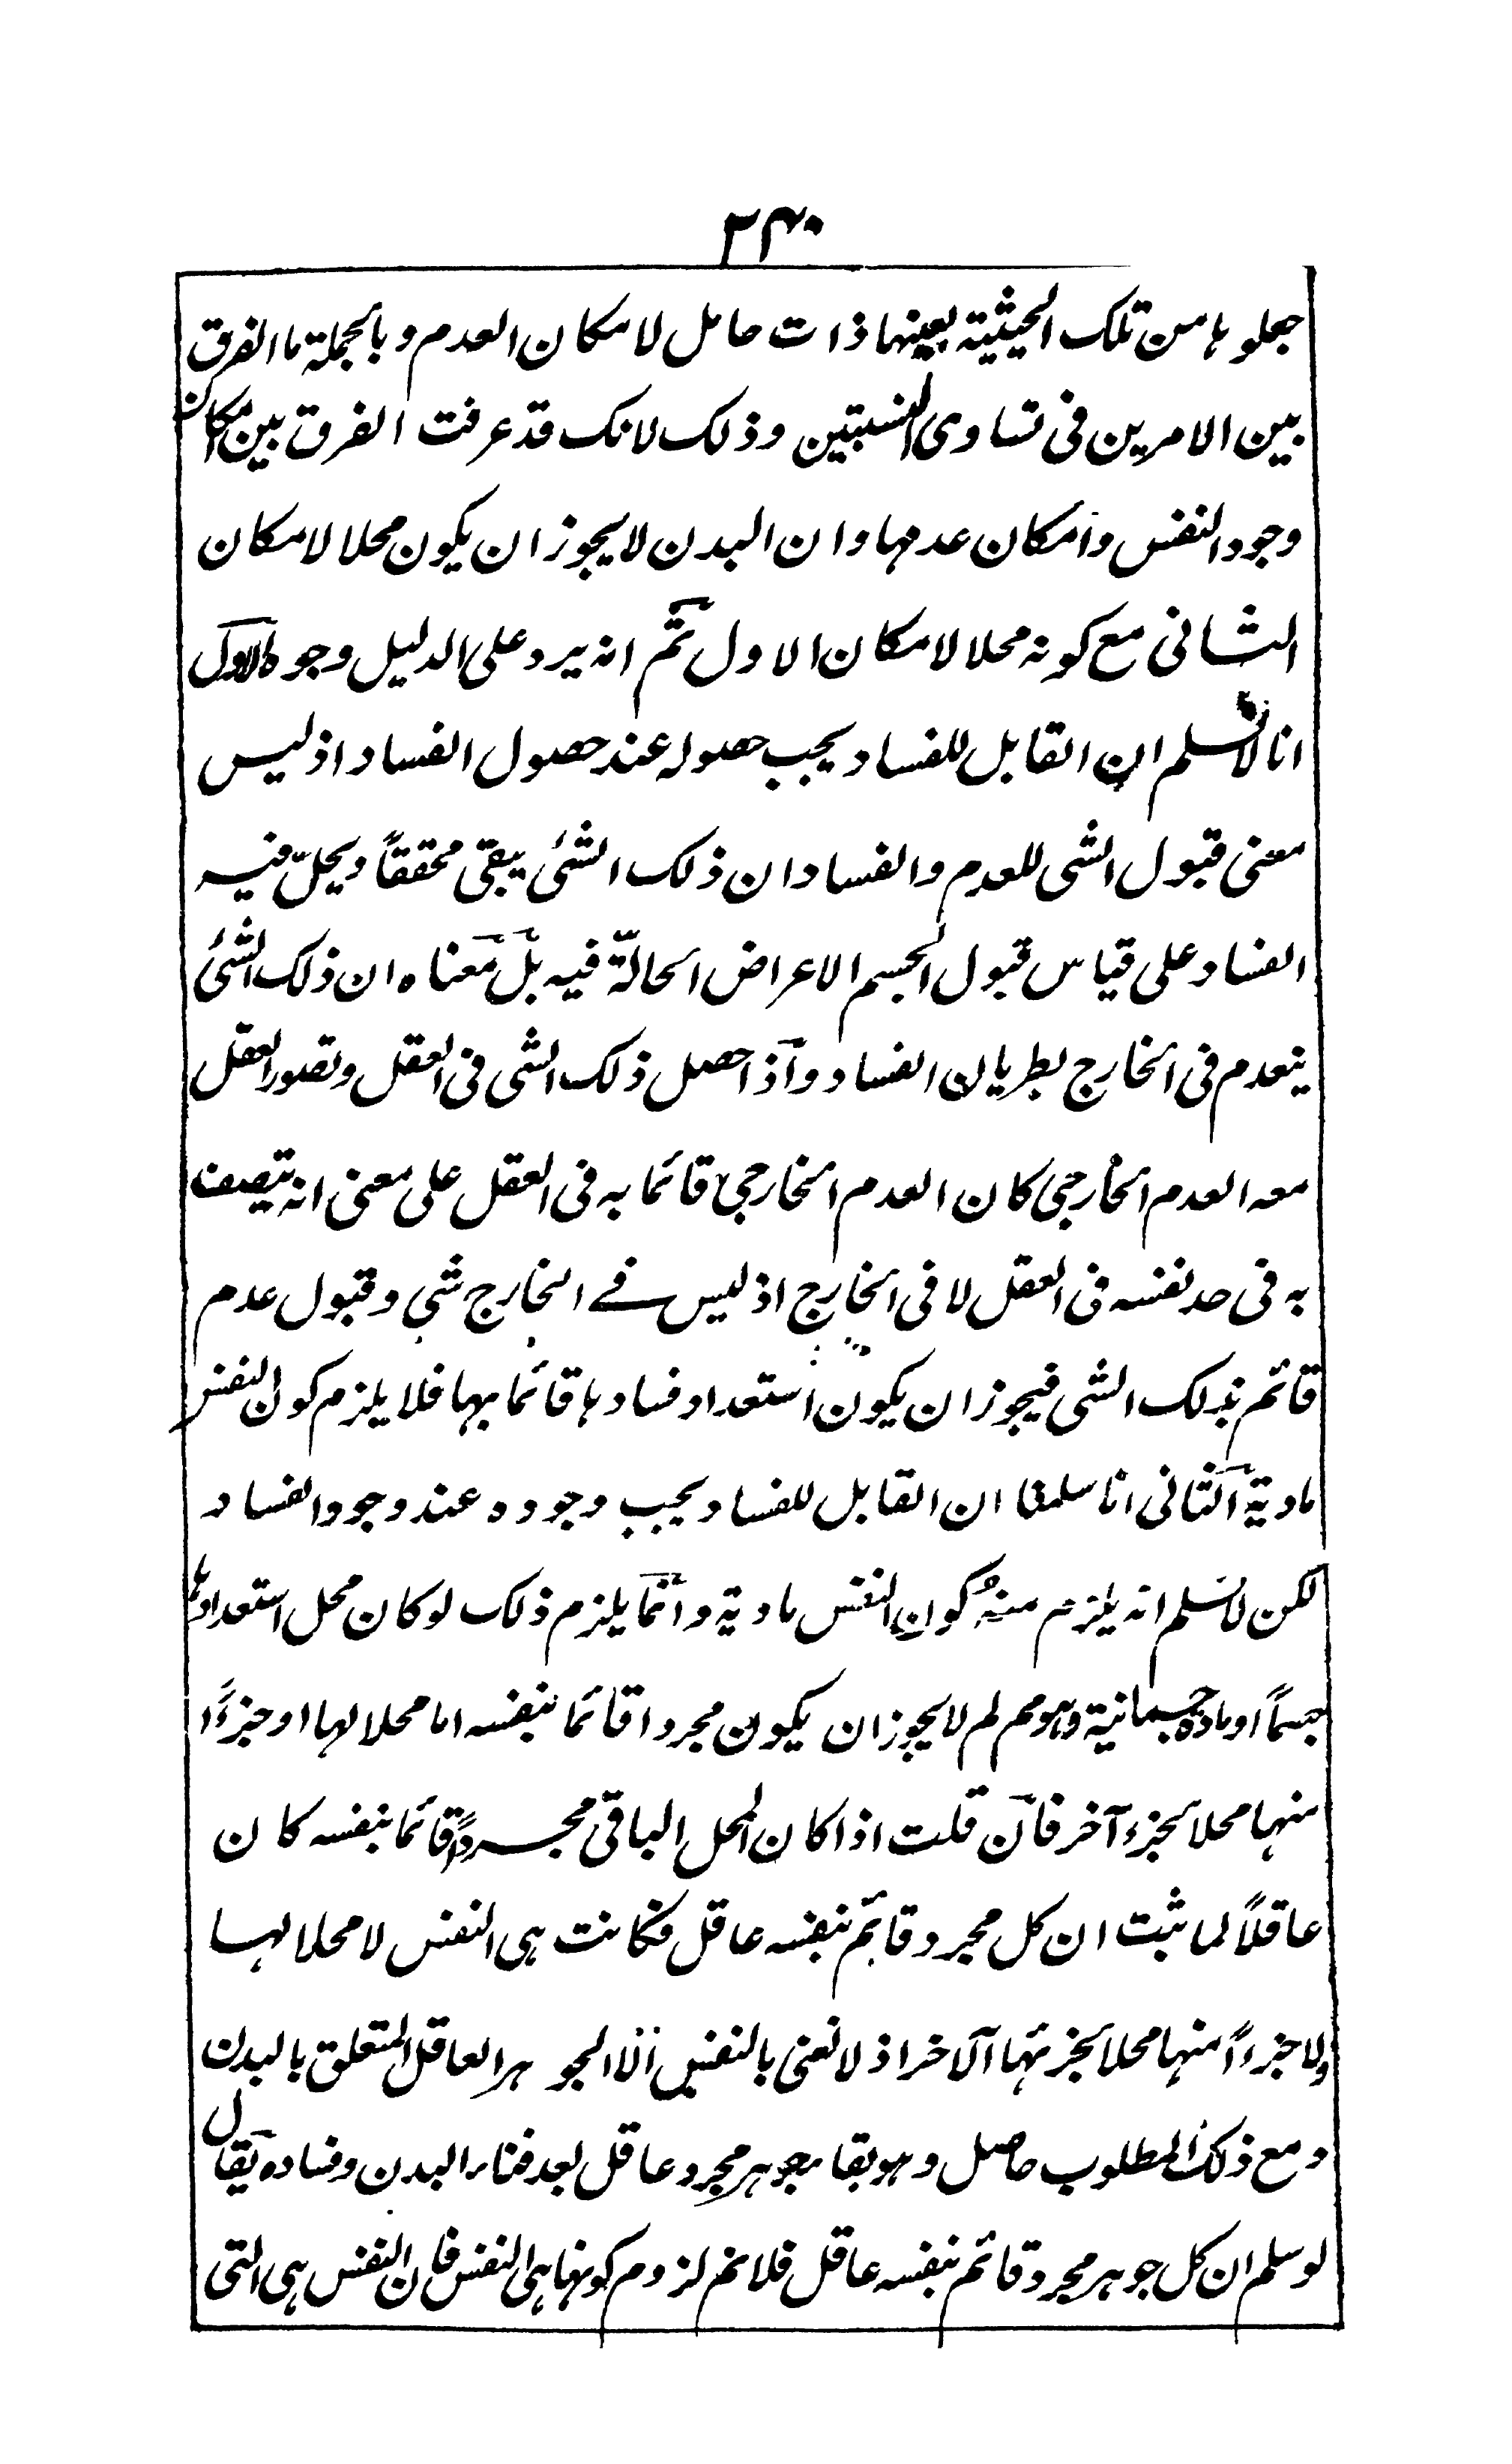 ٢٤٠
جعلوها من تلك الحيثية بعينها ذات حامل لامكان العدم وبالجملة ما الفرق
بين الامرين فى تساوى النسبتين وذلك لانك قد عرفت الفرق بين امكان
وجود النفس وامكان عدمها وان البدن لا يجوز ان يكون محلا لامكان
الثانى مع كونه محلا لامكان الاول ثم انه يرد على الدليل وجوه الاول
انا لا نسلم ان القابل للفساد يجب حصوله عند حصول الفساد اذ ليس
معنى قبول الشى للعدم والفساد ان ذلك الشئ يبقى محققاً ويحلّ فيه
الفساد على قياس قبول الجسم الاعراض الحالّة فيه بل معناه ان ذلك الشئ
ينعدم فى الخارج بطريان الفساد واذا حصل ذلك الشى فى العقل وتصور العقل
معه العدم الخارجى كان العدم الخارجى قائما به فى العقل على معنى انه يتصف
به فى حد نفسه فى العقل لا فى الخارج اذ ليس فے الخارج شى وقبول عدم
قائم بذلك الشى فيجوز ان يكون استعداد فسادها قائما بها فلا يلزم كون النفس
مادية الثانى انا سلمنا ان القابل للفساد يجب وجوده عند وجود الفساد
لكن لا نسلم انه يلزم منه كون النفس مادية وانما يلزم ذلك لو كان محل استعدادها
جسماً او مادة جسمانية وهو مم لم لا يجوز ان يكون مجردا قائما بنفسه اما محلا لها او جزءًا
منها محلا لجزء آخر فان قلت اذا كان المحل الباقى مجرداً قائما بنفسه كان
عاقلاً لما ثبت ان كل مجرد قائم بنفسه عاقل فكانت هى النفس لا محلا لها
ولا جزءاً منها محلا لجزئها الآخر اذ لا نعنى بالنفس الا الجوهر العاقل المتعلق بالبدن
ومع ذلك المطلوب حاصل وهو بقاء جوهر مجرد عاقل بعد فناء البدن وفساده يقال
لو سلم ان كل جوهر مجرد قائم بنفسه عاقل فلا نم لزوم كونها هى النفس فان النفس هى التى